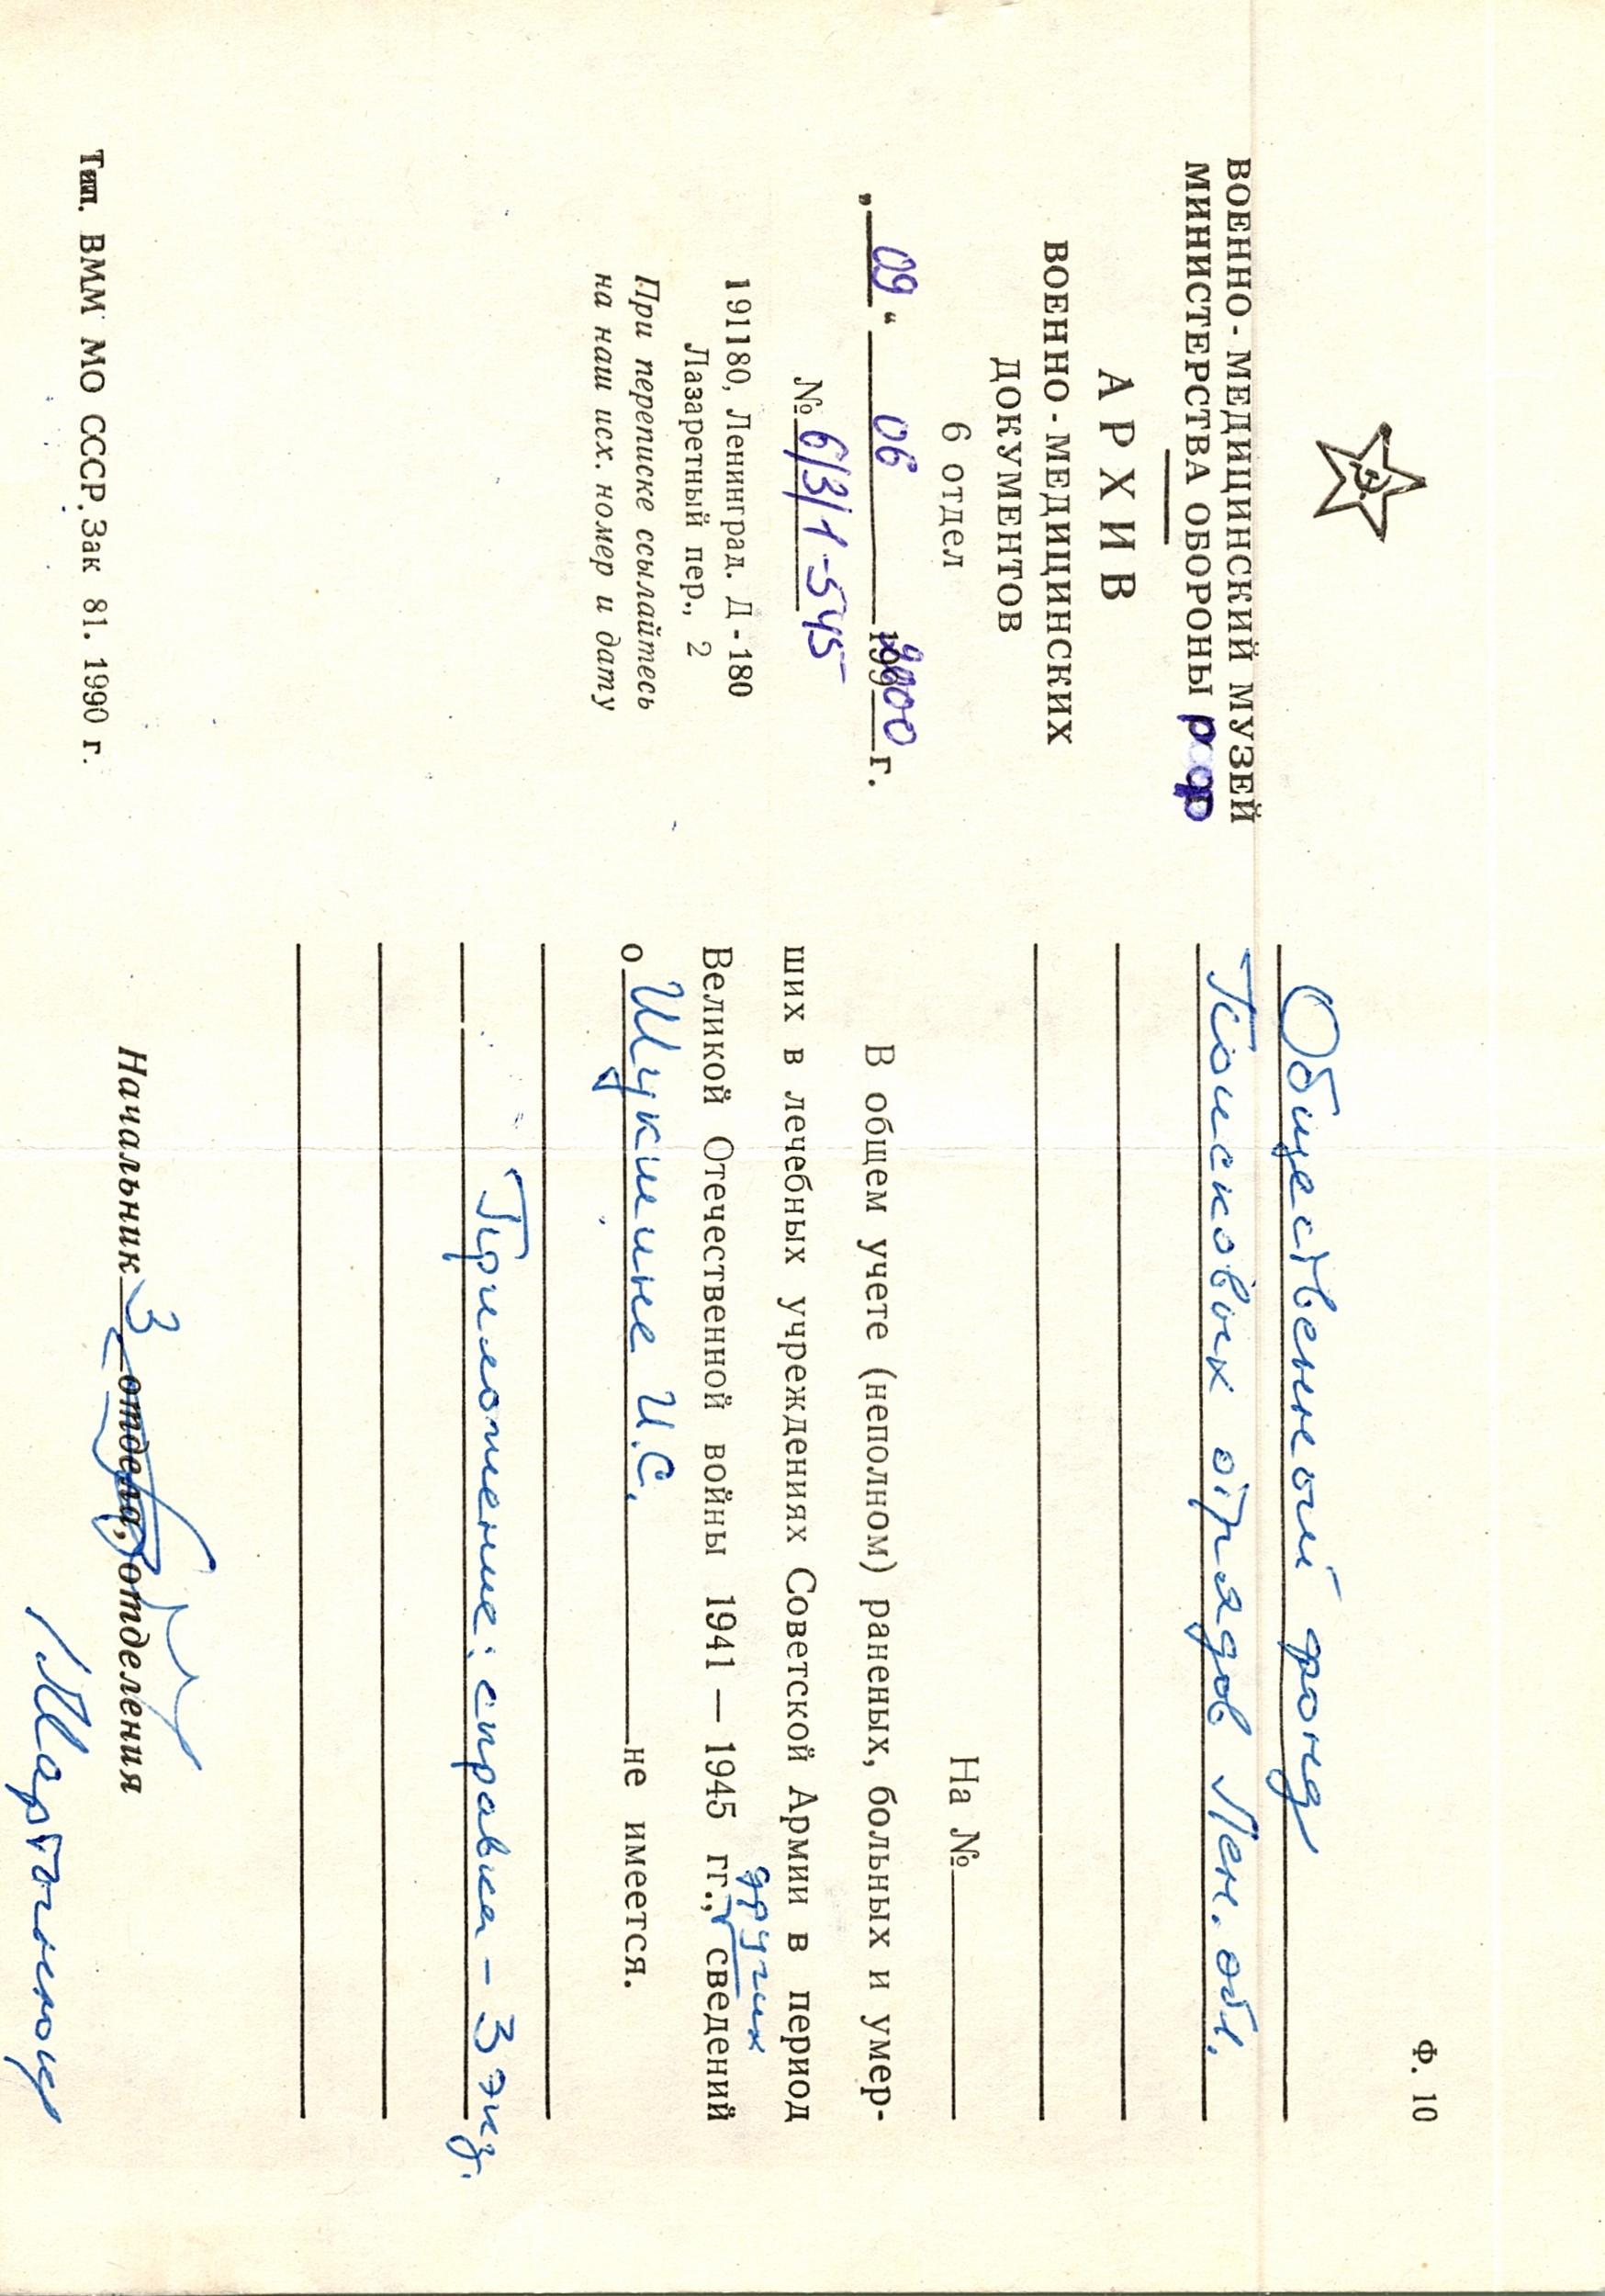 Ф. 10
ВОЕННО-МЕДИЦИНСКИЙ МУЗЕЙ
МИНИСТЕРСТВА ОБОРОНЫ РФ
АРХИВ
ВОЕННО-МЕДИЦИНСКИХ
ДОКУМЕНТОВ
6 отдел
„09“ 06 2000 г.
№ 6/3/1-545
191180, Ленинград. Д-180
Лазаретный пер., 2
При переписке ссылайтесь
на наш исх. номер и дату
Общественный фонд
Поисковых отрядов Лен. обл.
На №
В общем учете (неполном) раненых, больных и умер-
ших в лечебных учреждениях Советской Армии в период
Великой Отечественной войны 1941 — 1945 гг., других сведений
о Щукишне И.С. не имеется.
Приложение: справка – 3 экз.
Начальник 3 отдела, отделения
Тип. ВММ МО СССР. Зак 81. 1990 г.